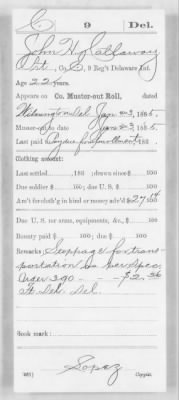 C 9 Del.
John H. Callaway
Pvt., Co. C, 9 Reg't Delaware Inf.
Age 22 years.
Appears on Co. Muster-out Roll, dated
Wilmington Del Jan 23, 1865.
Muster-out to date Jan 23, 1865.
Last paid to , 186 .
Clothing account:
Last settled , 186 ; drawn since $ 100
Due soldier $ 100; due U. S. $ 100
Am't for cloth'g in kind or money adv'd $ 27 14/100
Due U. S. for arms, equipments, &c., $ 100
Bounty paid $ 100; due $ 100
Remarks: Stoppage for trans
portation as per Spec.
Order 290 - - $2.36
Ft. Del. Del.
Book mark:
Lopez
(361) Copyist.